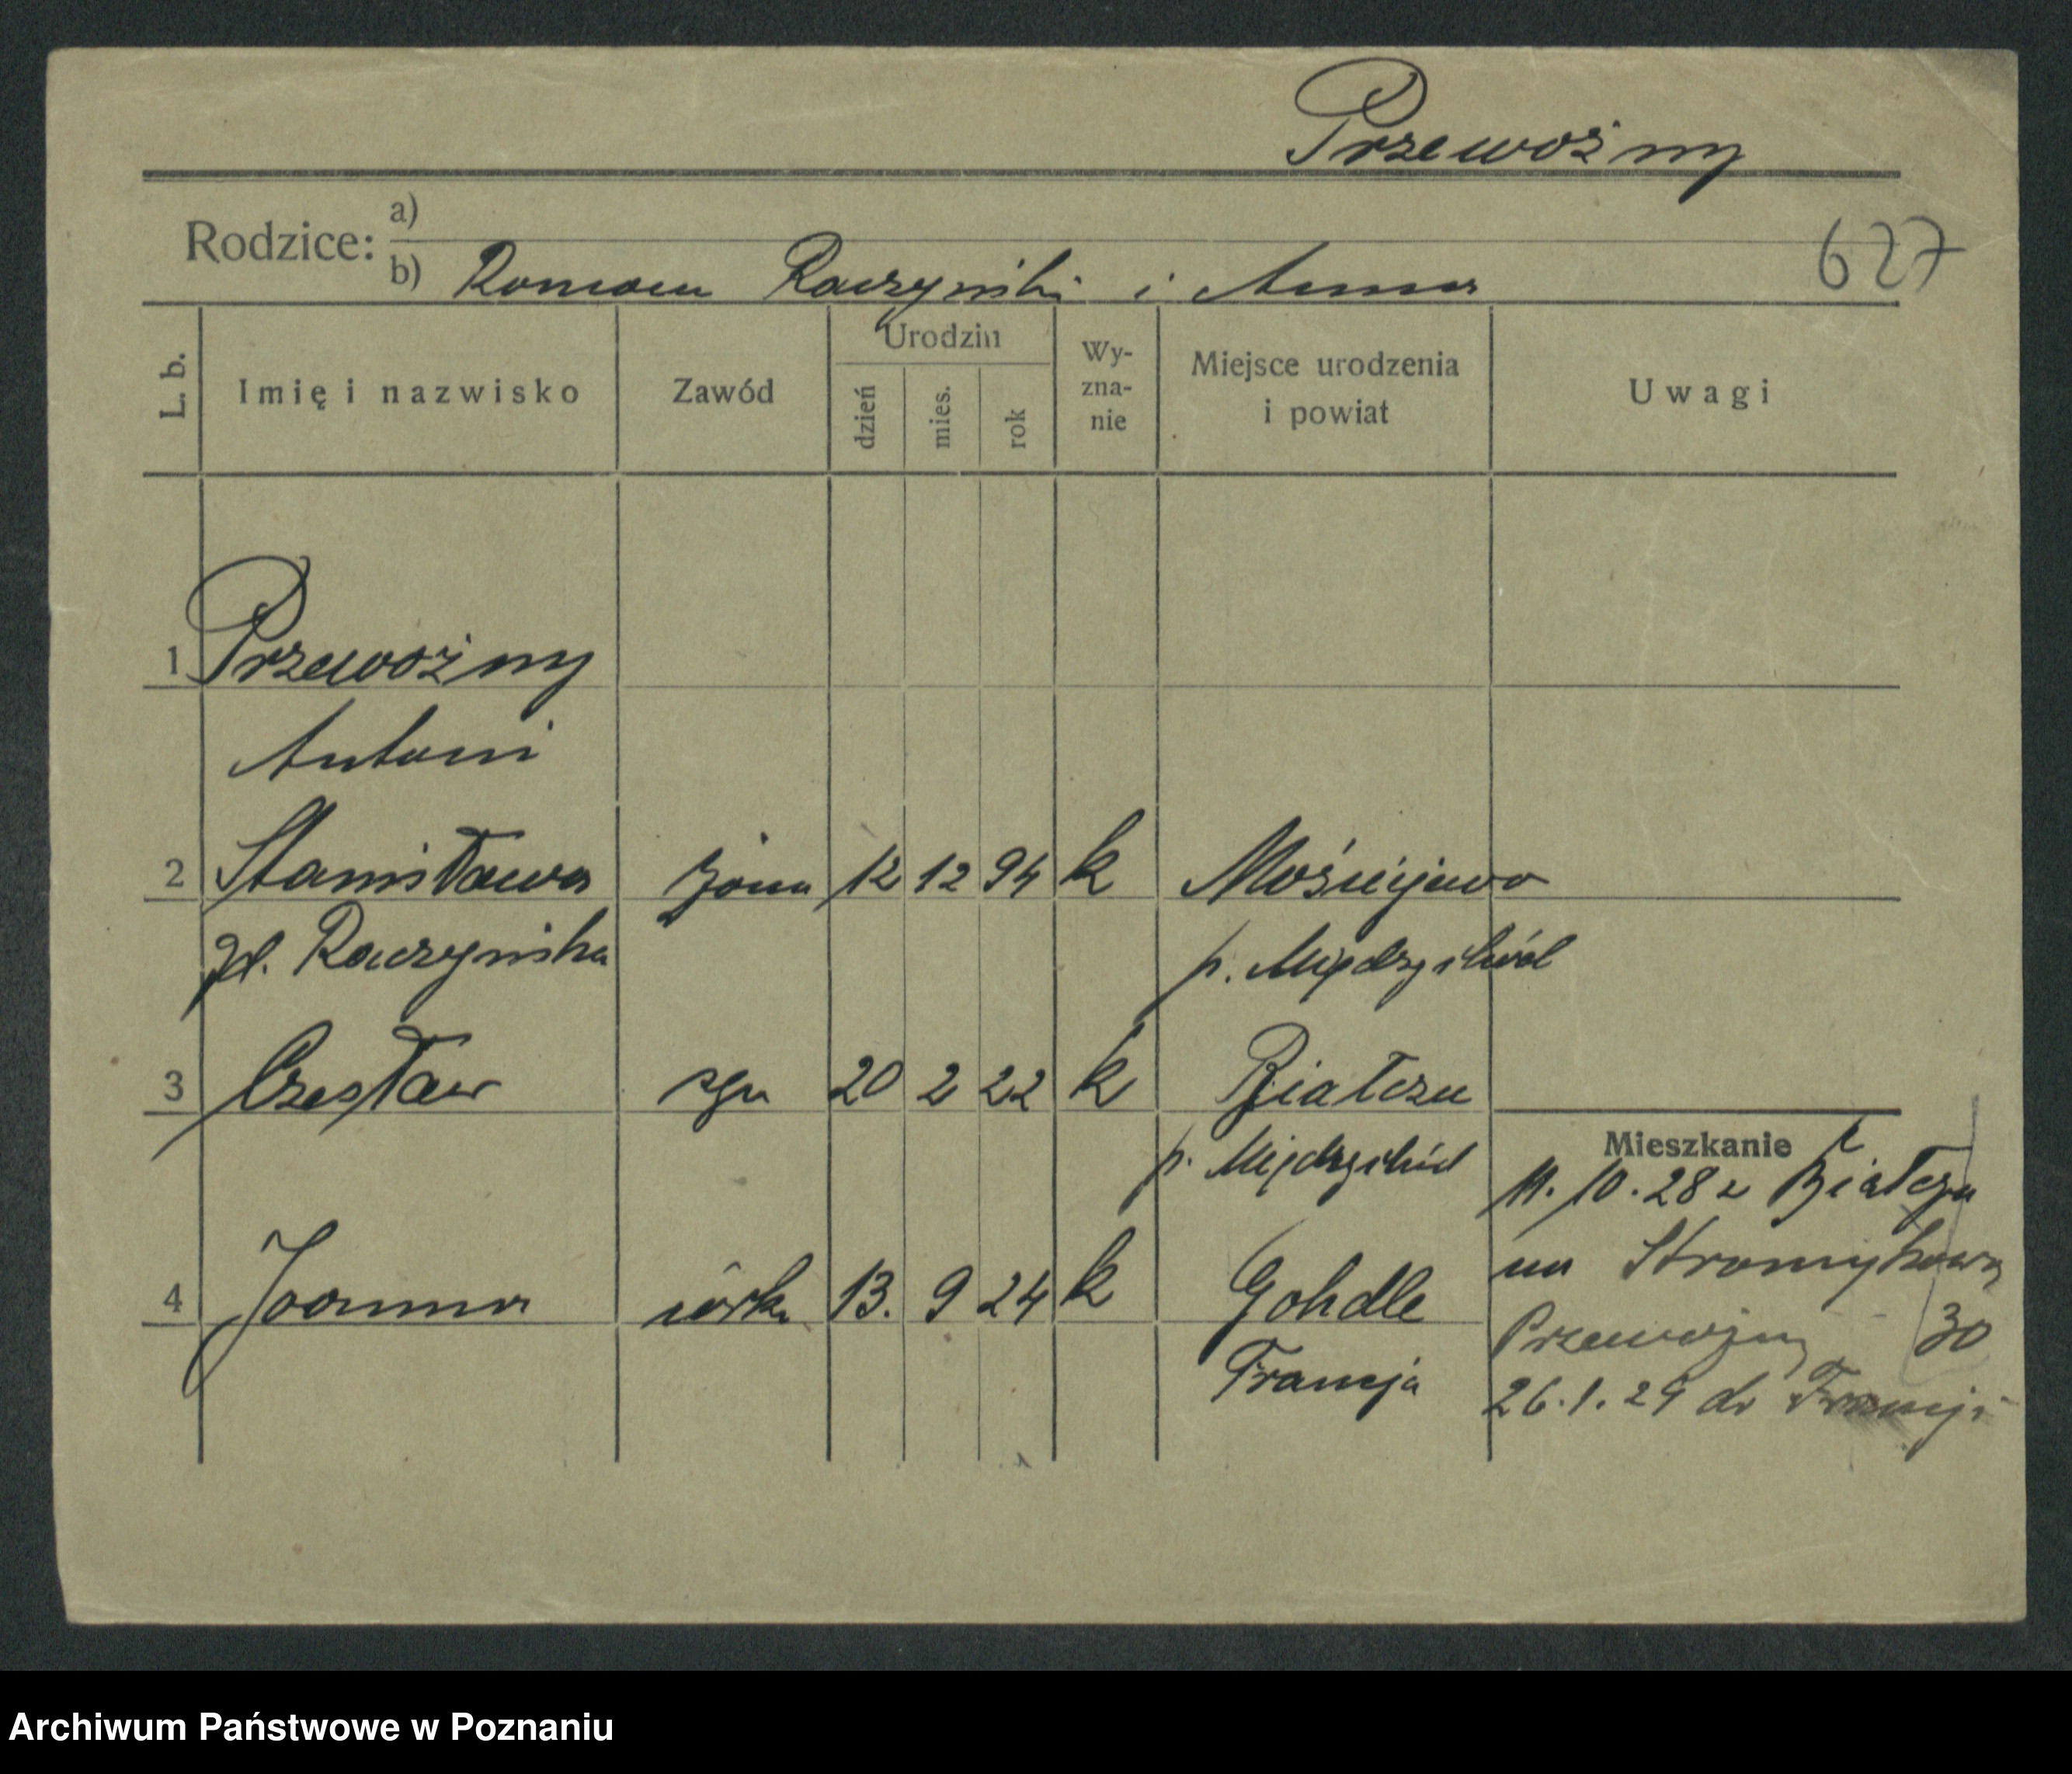 Przewoźny
Rodzice: a)
b) Roman Raczyński i Anna
627
L. b. Imię i nazwisko Zawód Urodzin dzień mies. rok Wyznanie Miejsce urodzenia i powiat Uwagi
1 Przewoźny
Antoni
2 Stanisława żona 12 12 94 k Mościejewo
zd. Raczyńska p. Międzychód
3 Czesław syn 20 2 22 k Białczu
p. Międzychód
4 Joanna córka 13. 9 24 k Gohdle
Francja
Mieszkanie
11. 10. 28 z Białcza
na
Przewoźny 30
26. 1. 29 do Francji
Archiwum Państwowe w Poznaniu